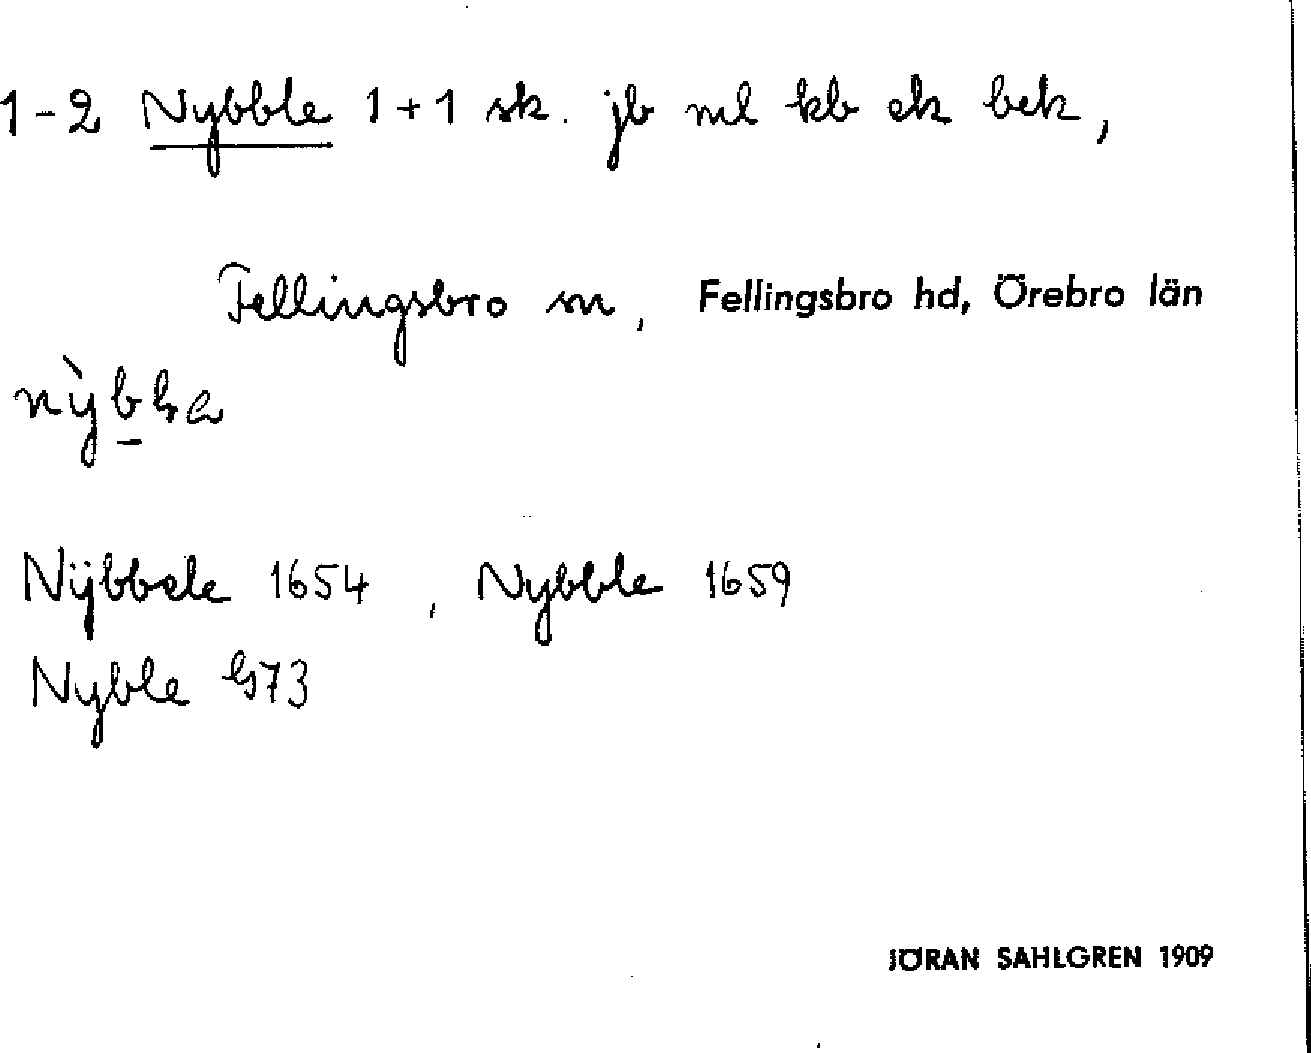 1-2 Nybble 1+1 sk. jb ml kb ek bek,
Fellingsbro sn, Fellingsbro hd, Örebro län
Nÿbbele 1654, Nybble 1659
Nyble G73
JÖRAN SAHLGREN 1909